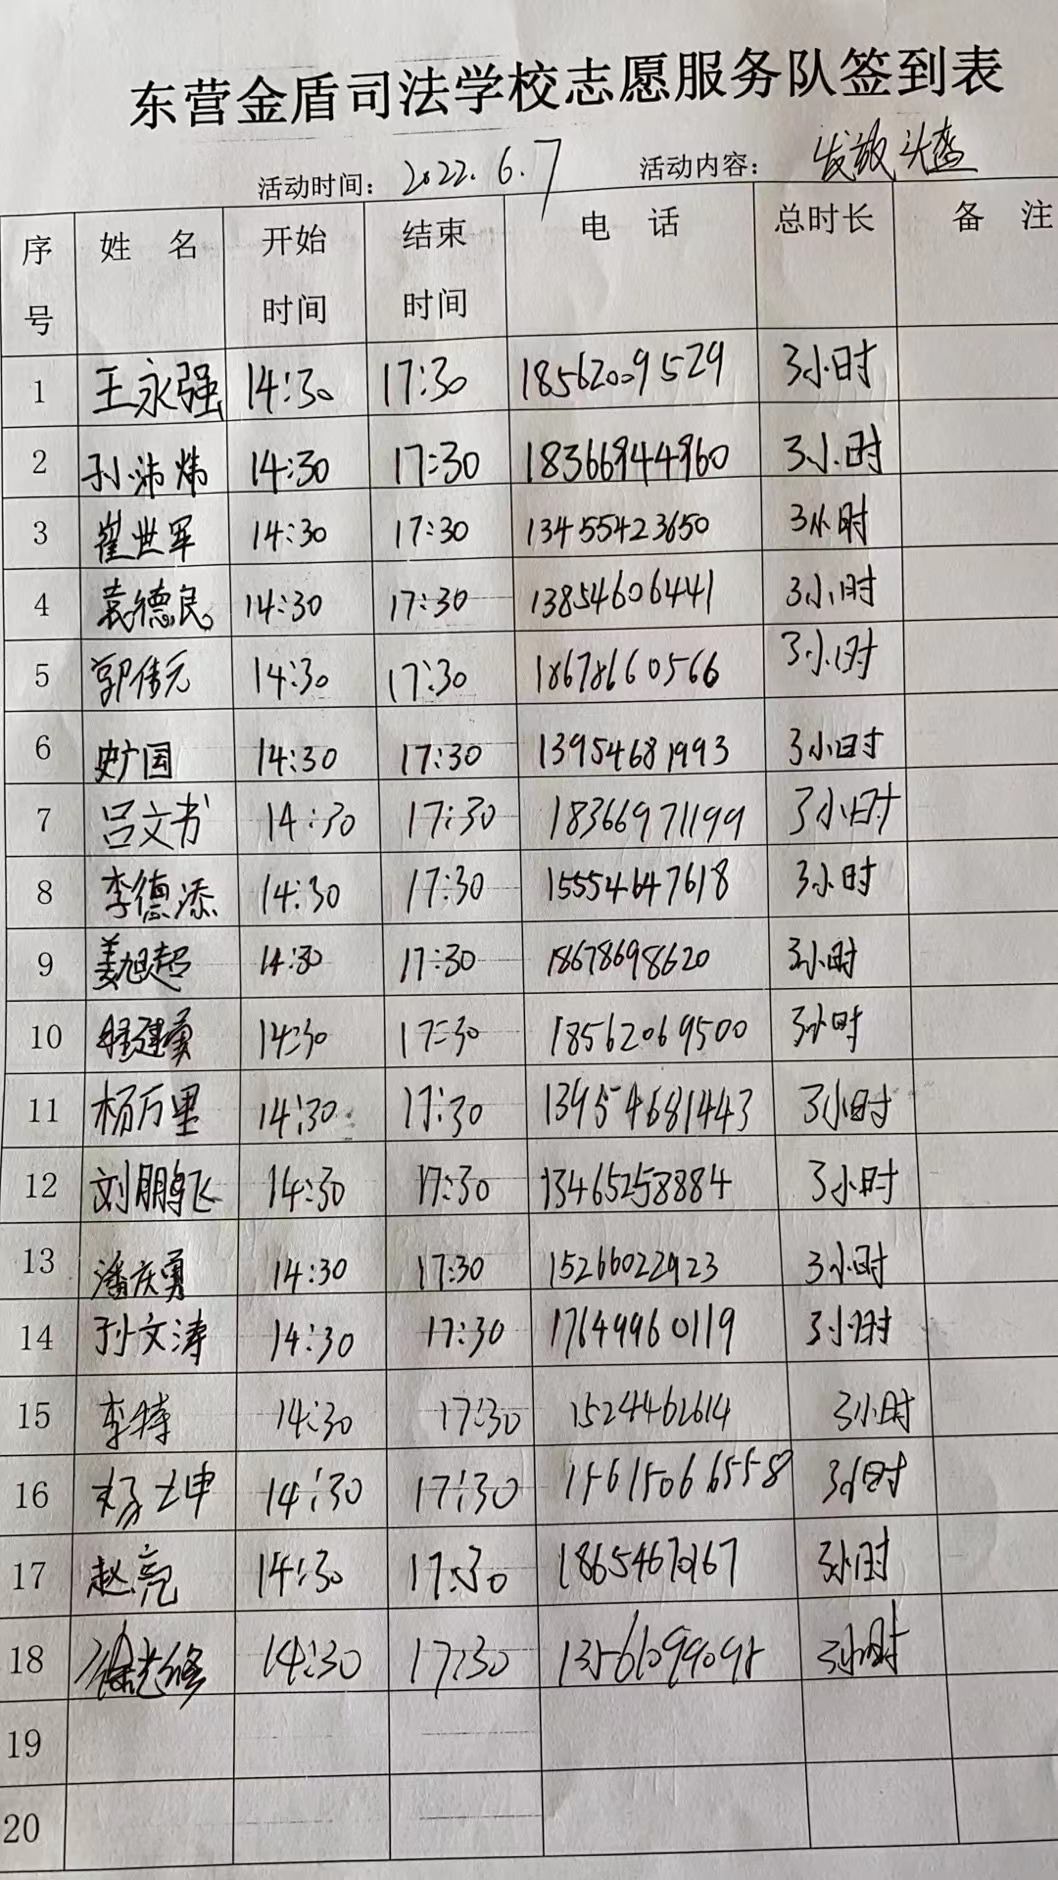 东营金盾司法学校志愿服务队签到表
活动时间：2022.6.7 活动内容：发放头盔
序号 姓名 开始时间 结束时间 电话 总时长 备注
1 王永强 14:30 17:30 18562009529 3小时
2 孙沛炜 14:30 17:30 18366944960 3小时
3 崔世军 14:30 17:30 13455423650 3小时
4 袁德民 14:30 17:30 13854606441 3小时
5 郭伟元 14:30 17:30 18678660566 3小时
6 史广国 14:30 17:30 13954681993 3小时
7 吕文书 14:30 17:30 18366971199 3小时
8 李德添 14:30 17:30 15554647618 3小时
9 姜旭超 14:30 17:30 18678698620 3小时
10 14:30 17:30 18562069500 3小时
11 杨万里 14:30 17:30 13954681443 3小时
12 刘鹏飞 14:30 17:30 13465258884 3小时
13 潘庆勇 14:30 17:30 15266022923 3小时
14 孙文涛 14:30 17:30 17649960119 3小时
15 李特 14:30 17:30 1524462614 3小时
16 14:30 17:30 15615066558 3小时
17 赵亮 14:30 17:30 3小时
18 14:30 17:30 3小时
19
20